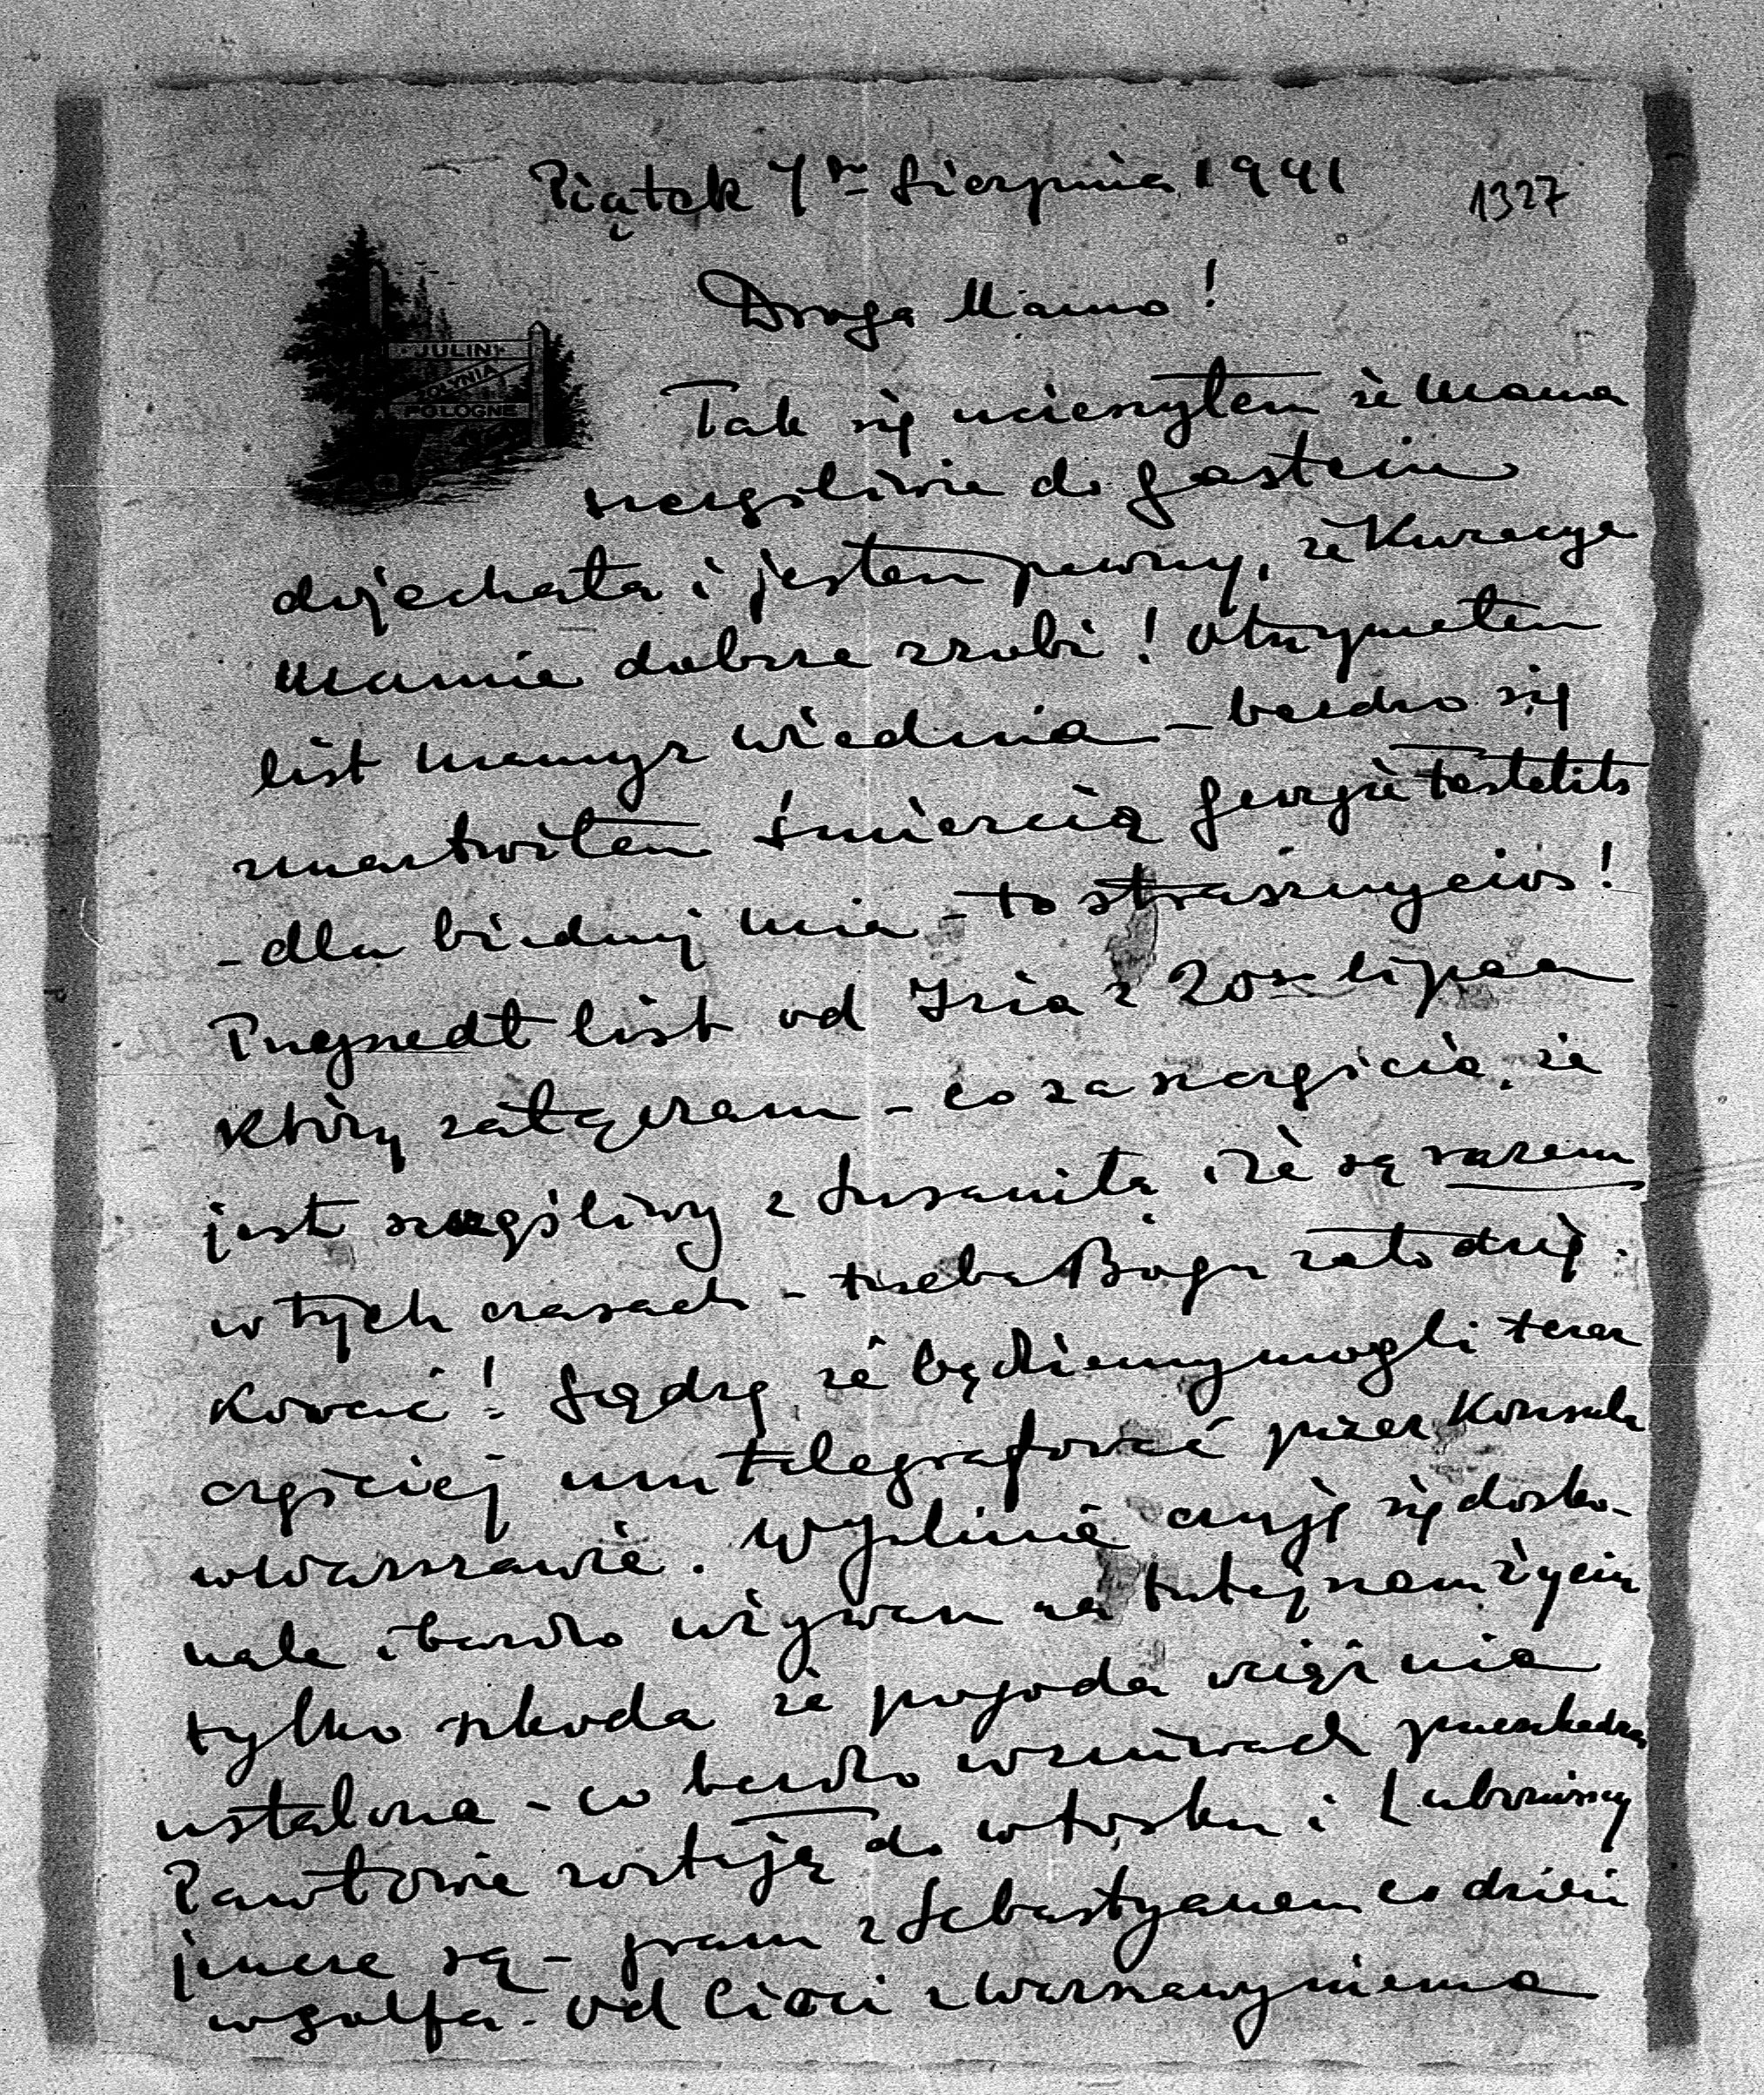 Piątek 7go Sierpnia 1941
1327
Droga Mamo!
JULIN
WOŁYNIA
POLOGNE
Tak się ucieszyłem że Mama
szczęśliwie do Gastein
dojechała i jestem pewny, że Kuracya
Mamie dobrze zrobi! Otrzymałem
list Mamy z Wiednia – bardzo się
zmartwiłem śmiercią Georgie Festetits
– dla biednej Mia – to straszny cios!
Przyszedł list od Izia z 20go lipca
który załączam – co za szczęście, że
jest szczęśliwy z Susanitą i że są razem
w tych czasach – trzeba Bogu za to dzię-
kować! Sądzę, że będziemy mogli teraz
częściej mu telegrafować przez Konsula
w Warszawie. W Julinie czuję się dosko-
nale i bardzo używam na tutejszem życiu
tylko szkoda że pogoda wciąż nie
ustalona – co bardzo w żniwach przeszkadza
Pawłowie zostają do wtorku i Lubomirscy
jeszcze są – gram z Sebastyanem co dzień
w golfa. Od Cioci z Warszawy niema